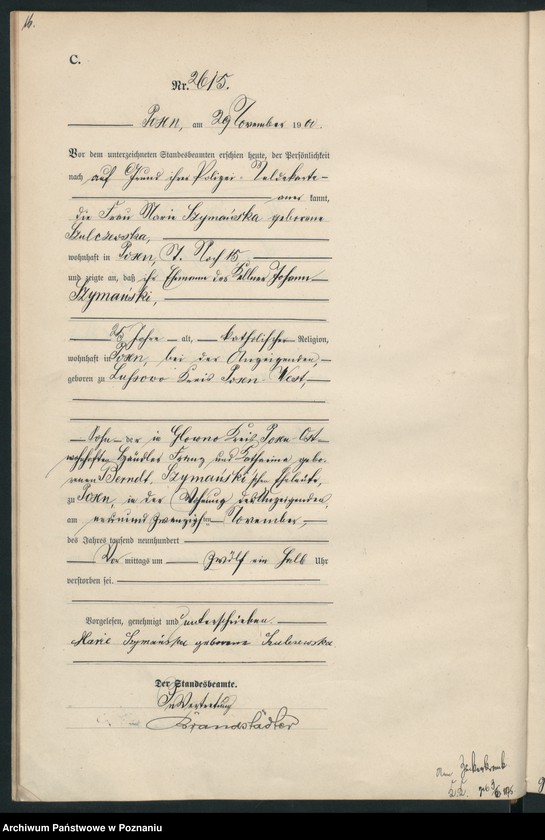 16.
C.
Nr. 2615.
Posen, am 29 November 1900.
Vor dem unterzeichneten Standesbeamten erschien heute, der Persönlichkeit
nach auf Grund ihrer Polizei-Meldekarte
anerkannt,
die Frau Marie Szymańska geborene
Szulczewska,
wohnhaft in Posen, St. Roch 15,
und zeigte an, daß ihr Ehemann der Kellner Johann
Szymański,
Jahre alt, katholischer Religion,
wohnhaft in Posen, bei der Anzeigenden,
geboren zu Lussowo Kreis Posen-West,
Sohn der in Glowno Kreis Posen-Ost
wohnhaften Händler Franz und Katharina gebo-
renen Berndt, Szymański'schen Eheleute,
zu Posen, in der Wohnung der Anzeigenden,
am neunundzwanzigsten November,
des Jahres tausend neunhundert
Vor mittags um zwölf ein halb Uhr
verstorben sei.
Vorgelesen, genehmigt und unterschrieben.
Marie Szymańska geborene Szulczewska
Der Standesbeamte.
In Vertretung
Brandstädter
Archiwum Państwowe w Poznaniu